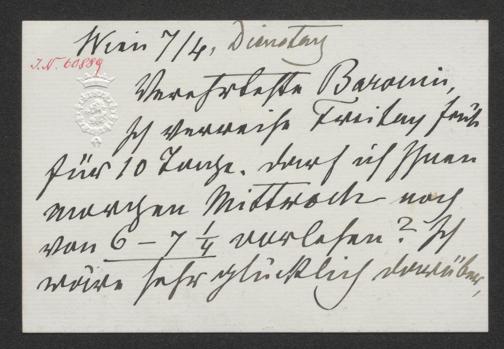 Wien 7/4, Dienstag
I.N. 60889
Verehrteste Baronin,
Ich verreise Freitag früh
für 10 Tage. Darf ich Ihnen
morgen Mittwoch noch
von 6 – 7 1/4 vorlesen? Ich
wäre sehr glücklich darüber,